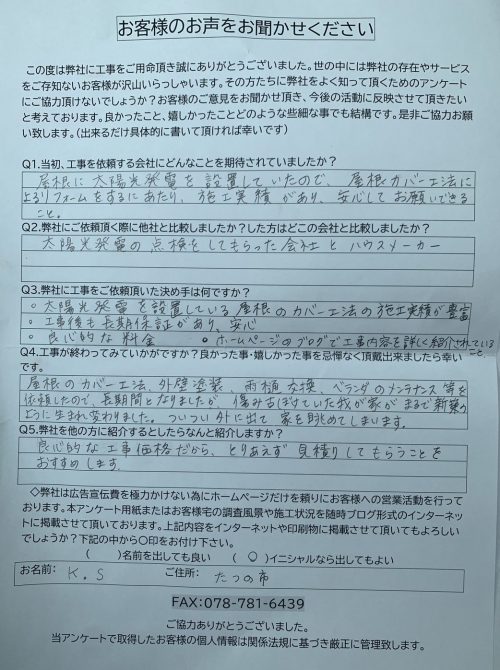 お客様のお声をお聞かせください
この度は弊社に工事をご用命頂き誠にありがとうございました。世の中には弊社の存在やサービス
をご存知ないお客様が沢山いらっしゃいます。その方たちに弊社をよく知って頂くためのアンケート
にご協力頂けないでしょうか?お客様のご意見をお聞かせ頂き、今後の活動に反映させて頂きたい
と考えております。良かったこと、嬉しかったことどのような些細な事でも結構です。是非ご協力お願
い致します。(出来るだけ具体的に書いて頂ければ幸いです)
Q1.当初、工事を依頼する会社にどんなことを期待されていましたか?
屋根に太陽光発電を設置していたので、屋根カバー工法に
よるリフォームをするにあたり、施工実績があり、安心してお願いできる
こと。
Q2.弊社にご依頼頂く際に他社と比較しましたか?した方はどこの会社と比較しましたか?
太陽光発電の点検をしてもらった会社とハウスメーカー
Q3.弊社に工事をご依頼頂いた決め手は何ですか?
・太陽光発電を設置している屋根のカバー工法の施工実績が豊富
・工事後も長期保証があり、安心
・良心的な料金 ・ホームページのブログで工事内容を詳しく紹介されている
こと
Q4.工事が終わってみていかがですか?良かった事・嬉しかった事を忌憚なく頂戴出来ましたら幸い
です。
屋根のカバー工法、外壁塗装、雨樋交換、ベランダのメンテナンス等を
依頼したので、長期間となりましたが、傷みぼけていた我が家がまるで新築の
ように生まれ変わりました。ついつい外に出て家を眺めてしまいます。
Q5.弊社を他の方に紹介するとしたらなんと紹介しますか?
良心的な工事価格だから、とりあえず見積りしてもらうことを
おすすめします。
◇弊社は広告宣伝費を極力かけない為にホームページだけを頼りにお客様への営業活動を行って
おります。本アンケート用紙またはお客様宅の調査風景や施工状況を随時ブログ形式のインターネッ
トに掲載させて頂いております。上記内容をインターネットや印刷物に掲載させて頂いてもよろしい
でしょうか?下記の中から〇印をお付け下さい。
( )名前を出しても良い (○)イニシャルなら出してもよい
お名前: K.S ご住所: たつの市
FAX:078-781-6439
ご協力ありがとうございました。
当アンケートで取得したお客様の個人情報は関係法規に基づき厳正に管理致します。